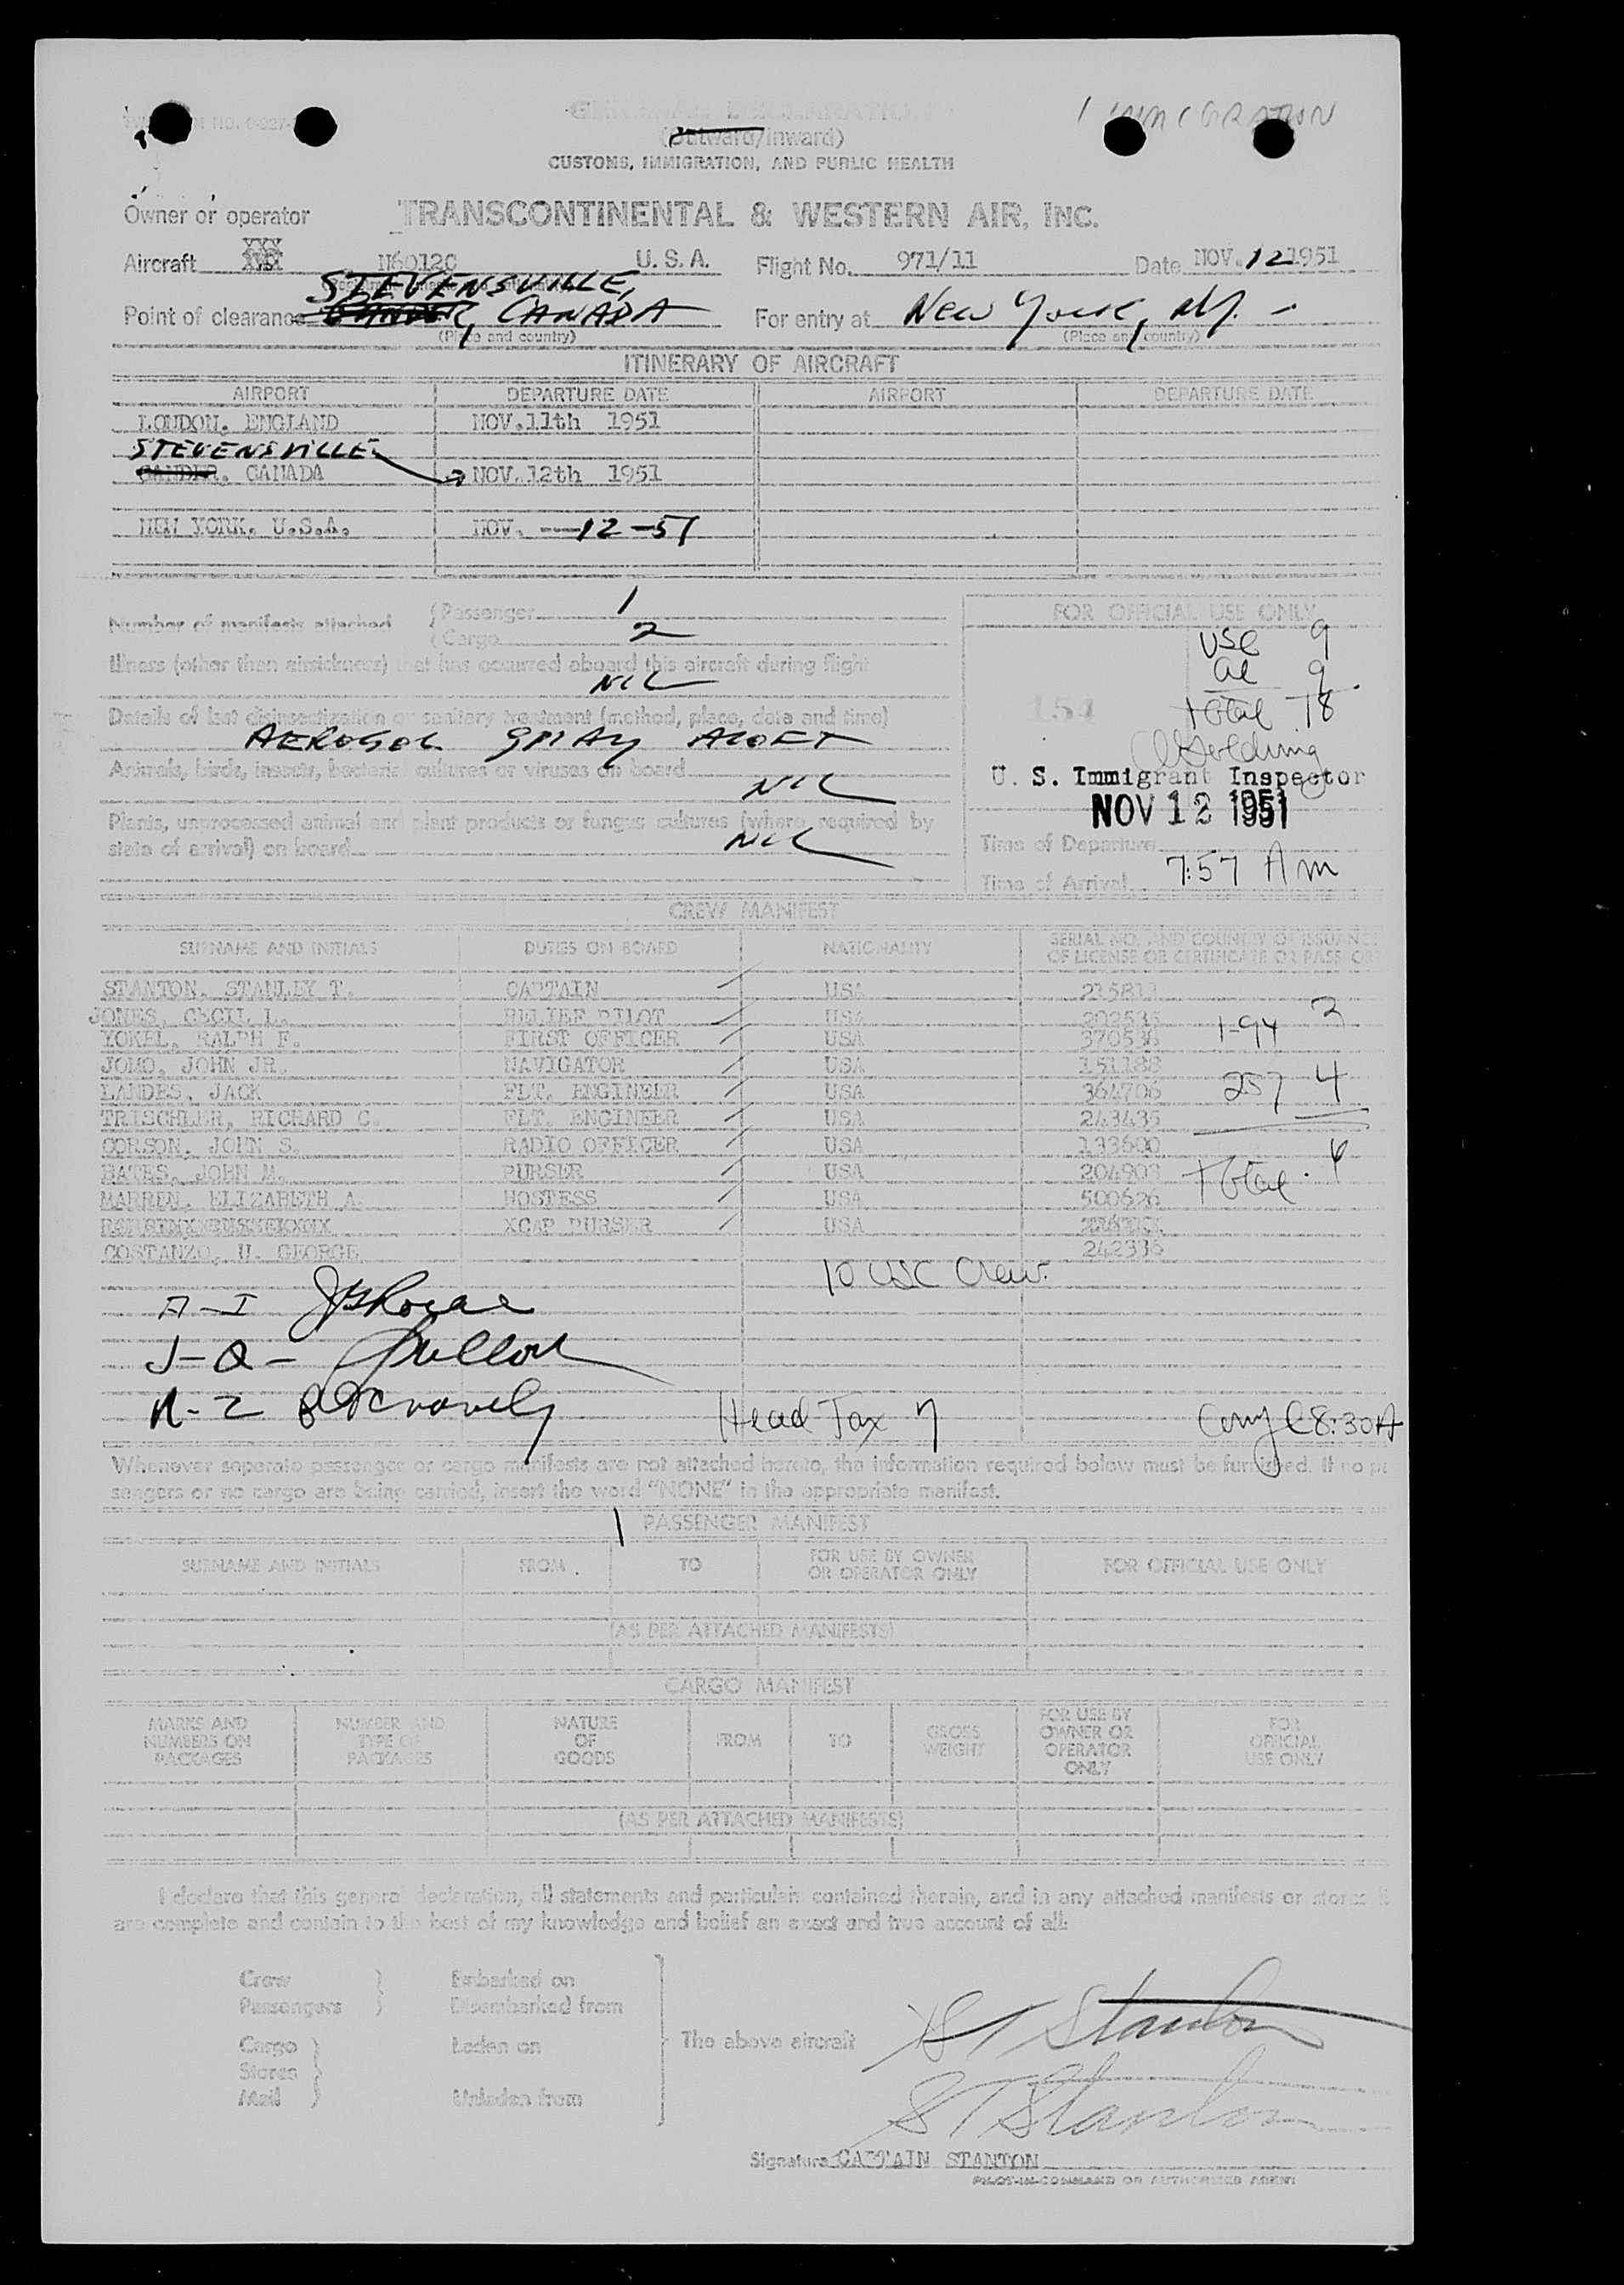 GENERAL DECLARATION
1 IMMIGRATION
(Outward/Inward)
CUSTOMS, IMMIGRATION, AND PUBLIC HEALTH
Owner or operator TRANSCONTINENTAL & WESTERN AIR, INC.
Aircraft N6012C U. S. A. Flight No. 971/11 Date NOV. 12 1951
STEVENSVILLE,
Point of clearance GANDER, CANADA For entry at New York, NY. -
(Place and country) (Place and country)
ITINERARY OF AIRCRAFT
AIRPORT DEPARTURE DATE AIRPORT DEPARTURE DATE
LONDON. ENGLAND NOV.11th 1951
STEVENSVILLE
GANDER. CANADA NOV.12th 1951
NEW YORK. U.S.A. NOV. ---12-51
Number of manifests attached (Passenger 1
(Cargo 2
FOR OFFICIAL USE ONLY
USC 9
al 9
Total 18
151
U. S. Immigrant Inspector
NOV 12 1951
Time of Departure
Time of Arrival 7:57 AM
Illness (other than airsickness) that has occurred aboard this aircraft during flight
NIL
Details of last disinsectization or sanitary treatment (method, place, date and time)
AEROSOL SPRAY ALOFT
Animals, birds, insects, bacterial cultures or viruses on board
NIL
Plants, unprocessed animal and plant products or fungus cultures (where required by
state of arrival) on board
NIL
CREW MANIFEST
SURNAME AND INITIALS DUTIES ON BOARD NATIONALITY SERIAL NO. AND COUNTRY OF ISSUANCE
OF LICENSE OR CERTIFICATE OR PASSPORT
STANTON. STANLEY T. CAPTAIN USA
JONES, CECIL L. RELIEF PILOT USA 202535
YOKEL, RALPH F. FIRST OFFICER USA 370538 I-94 3
JOMO, JOHN JR. NAVIGATOR USA 151188
LANDES, JACK FLT. ENGINEER USA 364706 257 4
TRISCHLER, RICHARD C. FLT. ENGINEER USA 243435
CORSON, JOHN S. RADIO OFFICER USA 133600
BATES, JOHN M. PURSER USA 204903 Total
MARREN, ELIZABETH A. HOSTESS USA 500626
XCAP PURSER USA
COSTANZO, U. GEORGE 242336
10 USC Crew.
A-I
J-Q-
R-Z
Head Tax 7
8:30A
Whenever separate passenger or cargo manifests are not attached hereto, the information required below must be furnished. If no pa
sengers or no cargo are being carried, insert the word "NONE" in the appropriate manifest.
1 PASSENGER MANIFEST
SURNAME AND INITIALS FROM TO FOR USE BY OWNER OR OPERATOR ONLY FOR OFFICIAL USE ONLY
(AS PER ATTACHED MANIFESTS)
CARGO MANIFEST
MARKS AND NUMBERS ON PACKAGES NUMBER AND TYPE OF PACKAGES NATURE OF GOODS FROM TO GROSS WEIGHT FOR USE BY OWNER OR OPERATOR ONLY FOR OFFICIAL USE ONLY
(AS PER ATTACHED MANIFESTS)
I declare that this general declaration, all statements and particulars contained therein, and in any attached manifests or stores
are complete and contain to the best of my knowledge and belief an exact and true account of all:
Crew Embarked on
Passengers Disembarked from
Cargo Laden on The above aircraft
Stores
Mail Unladen from
ST Stanton
ST Stanton
Signature CAPTAIN STANTON
PILOT-IN-COMMAND OR AUTHORIZED AGENT